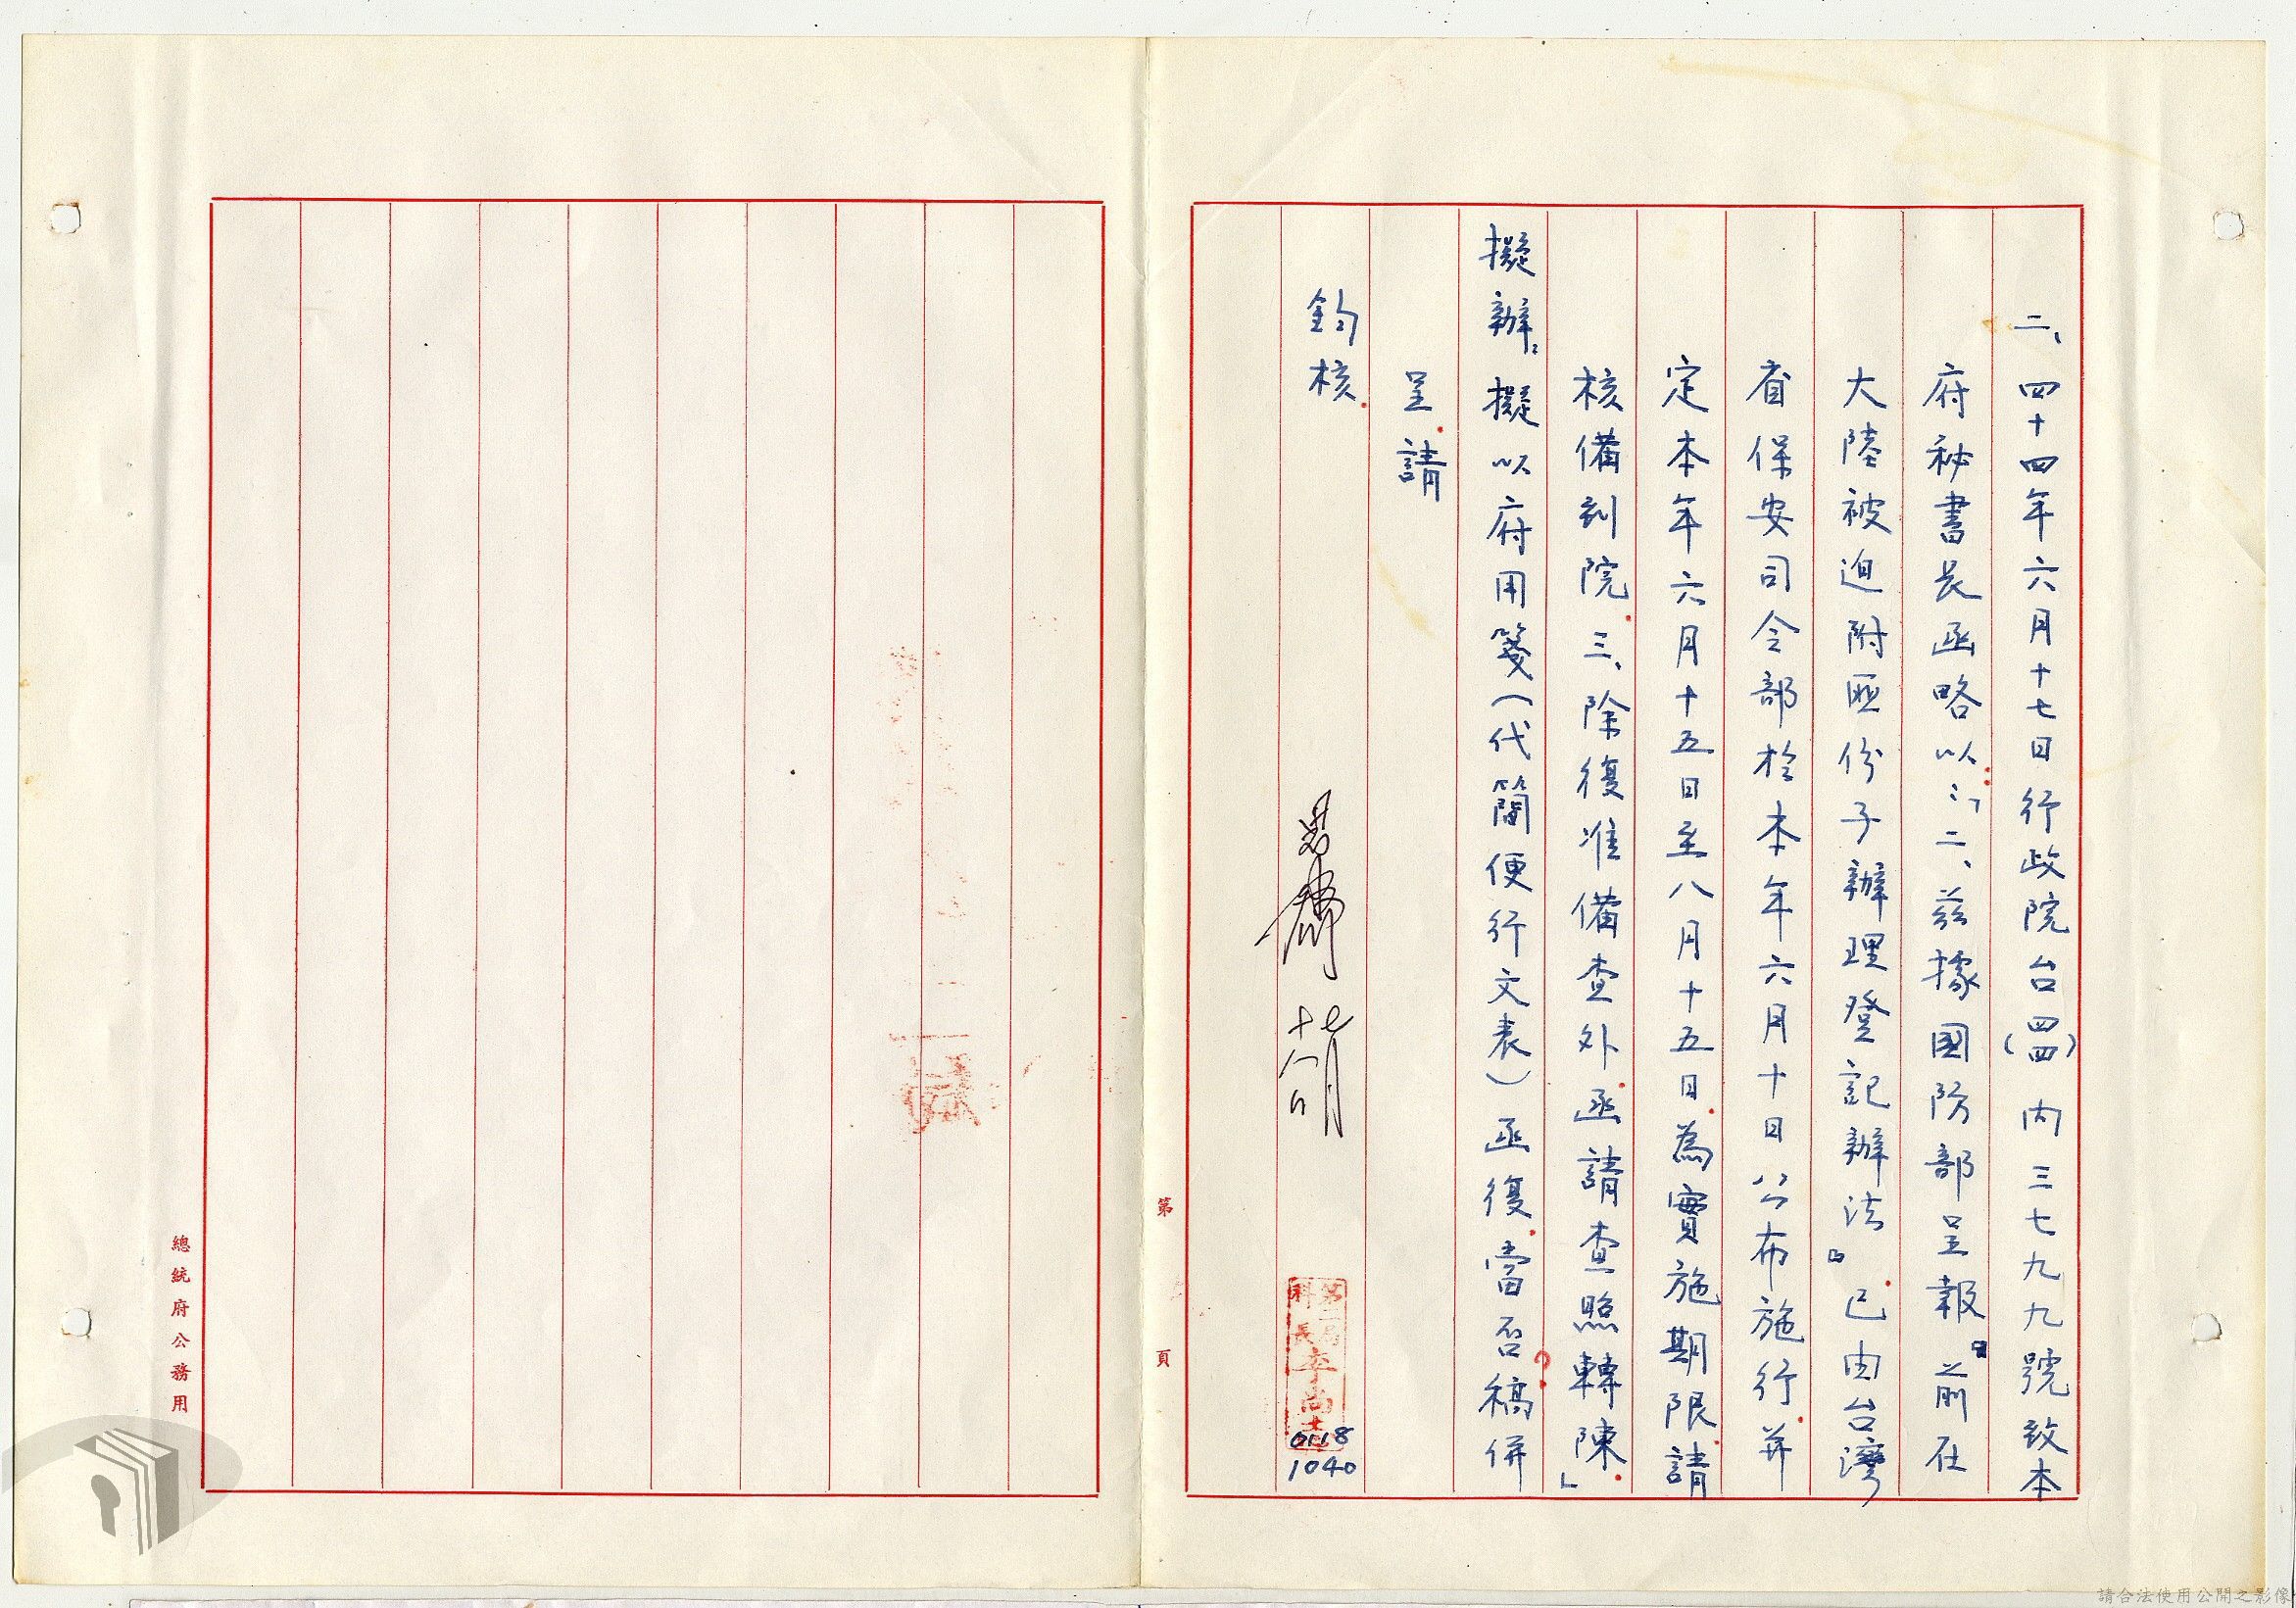 二、四十四年六月十七日行政院台(四四)內三七九九號致本
府秘書長函略以：「二、茲據國防部呈報『前在
大陸被迫附匪份子辦理登記辦法』已由台灣
省保安司令部於本年六月十日公布施行并
定本年六月十五日至八月十五日為實施期限請
核備到院三、除復准備查外函請查照轉陳」
擬辦：擬以府用箋(代簡便行文表)函復當否稿併
呈請
鈞核
第二局
科長李尚志
0118
1040
第 頁
總統府公務用
請合法使用公開之影像